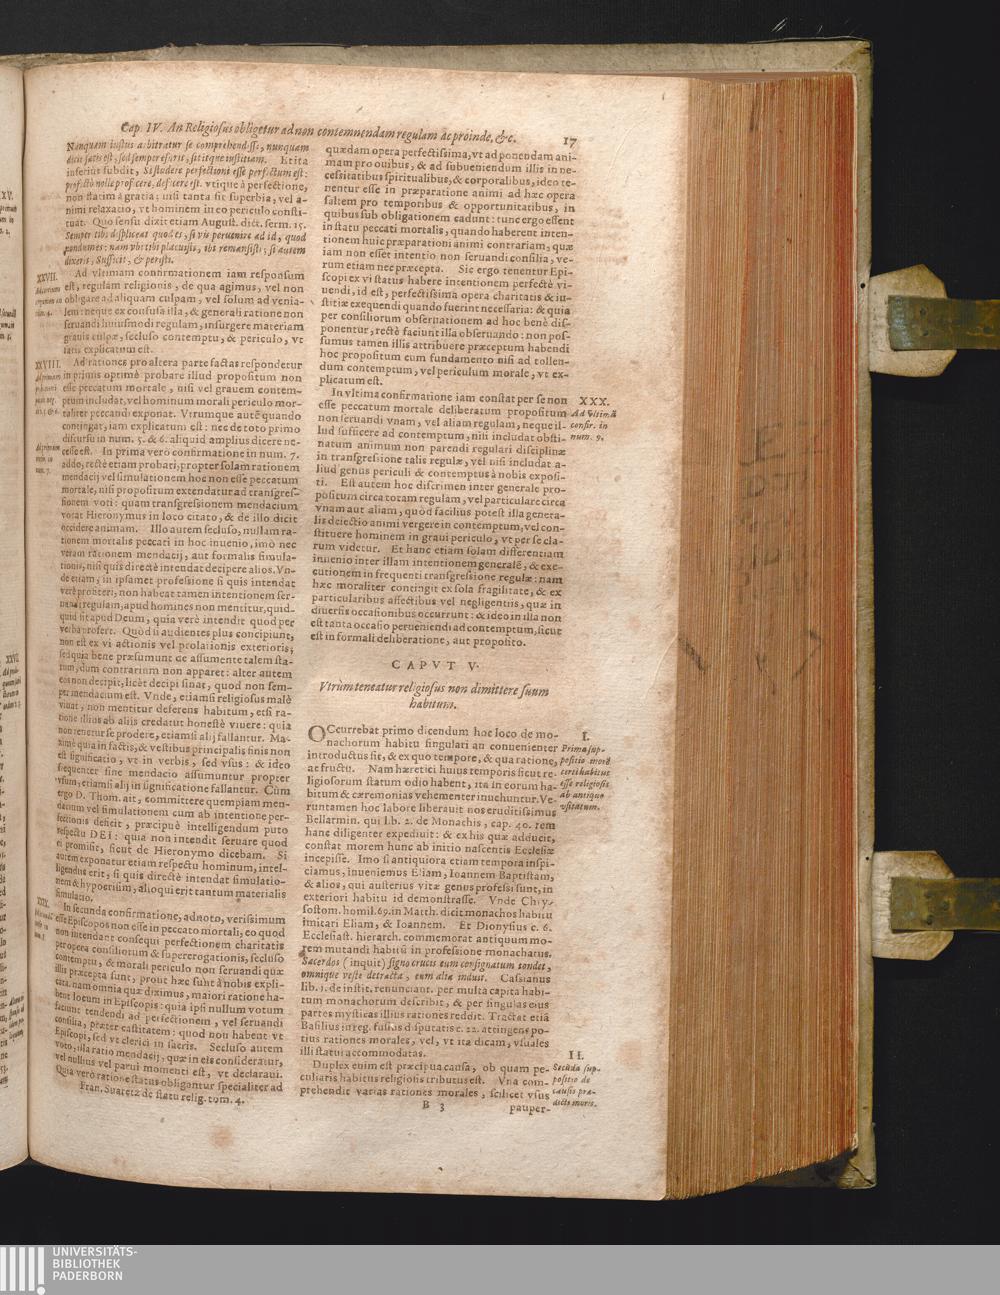 Cap. IV. An Religiosus obligetur ad non contemnendam regulam ac proinde, &c. 17
Nunquam iustus arbitratur se comprehendisse, nunquam
dicit satis est, sed semper esurit, sititque iustitiam. Et ita
inferius subdit, Si studere perfectioni esse perfectum est:
profectò nolle proficere, deficere est. vtique à perfectione,
non statim à gratia; nisi tanta sit superbia, vel a-
nimi relaxatio, vt hominem in eo periculo consti-
tuat. Quo sensu dixit etiam August. dict. serm. 15.
Semper tibi displiceat quod es, si vis peruenire ad id, quod
nondum es: nam vbi tibi placuisti, ibi remansisti; si autem
dixeris, Sufficit, & peristi.
XXVII.
Ad vltimam confirmationem iam responsum
est, regulam religionis, de qua agimus, vel non
obligare ad aliquam culpam, vel solum ad venia-
lem: neque ex confusa illa, & generali ratione non
seruandi huiusmodi regulam, insurgere materiam
grauis culpæ, secluso contemptu, & periculo, vt
satis explicatum est.
XXVIII.
Ad rationes pro altera parte factas respondetur
in primis optimè probare illud propositum non
esse peccatum mortale, nisi vel grauem contem-
ptum includat, vel hominum morali periculo mor-
taliter peccandi exponat. Vtrumque autē quando
contingat, iam explicatum est: nec de toto primo
discursu in num. 5. & 6. aliquid amplius dicere ne-
cesse est. In prima verò confirmatione in num. 7.
addo, rectè etiam probati, propter solam rationem
mendacij vel simulationem hoc non esse peccatum
mortale, nisi propositum extendatur ad transgres-
sionem voti: quam transgressionem mendacium
vocat Hieronymus in loco citato, & de illo dicit
occidere animam. Illo autem secluso, nullam ra-
tionem mortalis peccati in hoc inuenio, imò nec
veram rationem mendacij, aut formalis simula-
tionis, nisi quis directè intendat decipere alios. Vn-
de etiam, in ipsamet professione si quis intendat
verè profiteri, non habeat tamen intentionem ser-
uandi regulam, apud homines non mentitur, quid-
quid sit apud Deum, quia verè intendit quod per
verba profert. Quòd si audientes plus concipiunt,
non est ex vi actionis vel prolationis exterioris;
sed quia bene præsumunt de assumente talem sta-
tum, dum contrarium non apparet: aliter autem
eos non decipit, licèt decipi sinat, quod non sem-
per mendacium est. Vnde, etiamsi religiosus malè
viuat, non mentitur deferens habitum, etsi ra-
tione illius ab aliis credatur honestè viuere: quia
non tenetur se prodere, etiamsi alij fallantur. Ma-
ximè quia in factis, & vestibus principalis finis non
est significatio, vt in verbis, sed vsus: & ideo
frequenter sine mendacio assumuntur propter
vsum, etiamsi alij in significatione fallantur. Cùm
ergo D. Thom. ait, committere quempiam men-
dacium vel simulationem cum ab intentione per-
fectionis deficit, præcipuè intelligendum puto
respectu DEI: quia non intendit seruare quod
ei promisit, sicut de Hieronymo dicebam. Si
autem exponatur etiam respectu hominum, intel-
ligendus erit, si quis directè intendat simulatio-
nem & hypocrisim, alioqui erit tantum materialis
simulatio.
XXIX.
In secunda confirmatione, adnoto, verissimum
esse Episcopos non esse in peccato mortali, eo quod
non intendant consequi perfectionem charitatis
per opera consiliorum & supererogationis, secluso
contemptu, & morali periculo non seruandi quæ
illis præcepta sunt, prout hæc sunt à nobis expli-
cata. nam omnia quæ diximus, maiori ratione ha-
bent locum in Episcopis: quia ipsi nullum votum
faciunt tendendi ad perfectionem, vel seruandi
consilia, præter castitatem: quod non habent vt
Episcopi, sed vt clerici in sacris. Secluso autem
voto, illa ratio mendacij, quæ in eis consideratur,
vel nullius vel parui momenti est, vt declaraui.
Quia verò ratione status obligantur specialiter ad
Fran. Suarez de statu relig. tom. 4.
quædam opera perfectissima, vt ad ponendam ani-
mam pro ouibus, & ad subueniendum illis in ne-
cessitatibus spiritualibus, & corporalibus, ideo te-
nentur esse in præparatione animi ad hæc opera
saltem pro temporibus & opportunitatibus, in
quibus sub obligationem cadunt: tunc ergo essent
in statu peccati mortalis, quando haberent inten-
tionem huic præparationi animi contrariam, quæ
iam non esset intentio non seruandi consilia, ve-
rum etiam nec præcepta. Sic ergo tenentur Epi-
scopi ex vi status habere intentionem perfectè vi-
uendi, id est, perfectissima opera charitatis & iu-
stitiæ exequendi quando fuerint necessaria: & quia
per consiliorum obseruationem ad hoc benè dis-
ponentur, rectè faciunt illa obseruando: non pos-
sumus tamen illis attribuere præceptum habendi
hoc propositum cum fundamento nisi ad tollen-
dum contemptum, vel periculum morale, vt ex-
plicatum est.
In vltima confirmatione iam constat per se non
esse peccatum mortale deliberatum propositum
non seruandi vnam, vel aliam regulam, neque il-
lud sufficere ad contemptum, nisi includat obsti-
natum animum non parendi regulari disciplinæ
in transgressione talis regulæ, vel nisi includat a-
liud genus periculi & contemptus à nobis exposi-
ti. Est autem hoc discrimen inter generale pro-
positum circa totam regulam, vel particulare circa
vnam aut aliam, quòd facilius potest illa genera-
lis deiectio animi vergere in contemptum, vel con-
stituere hominem in graui periculo, vt per se cla-
rum videtur. Et hanc etiam solam differentiam
inuenio inter illam intentionem generalē, & exe-
cutionem in frequenti transgressione regulæ: nam
hæc moraliter contingit ex sola fragilitate, & ex
particularibus affectibus vel negligentiis, quæ in
diuersis occasionibus occurrunt: & ideo in illa non
est tanta occasio perueniendi ad contemptum, sicut
est in formali deliberatione, aut proposito.
XXX.
Ad vltimā
confir. in
num. 9.
CAPVT V.
Vtrùm teneatur religiosus non dimittere suum
habitum.
OCcurrebat primo dicendum hoc loco de mo-
nachorum habitu singulari an conuenienter
introductus sit, & ex quo tempore, & qua ratione,
ac fructu. Nam hæretici huius temporis sicut re-
ligiosorum statum odio habent, ita in eorum ha-
bitum & cæremonias vehementer inuehuntur. Ve-
runtamen hoc labore liberauit nos eruditissimus
Bellarmin. qui lib. 2. de Monachis, cap. 40. rem
hanc diligenter expediuit: & ex his quæ adducit,
constat morem hunc ab initio nascentis Ecclesiæ
incepisse. Imo si antiquiora etiam tempora inspi-
ciamus, inueniemus Eliam, Ioannem Baptistam,
& alios, qui austerius vitæ genus professi sunt, in
exteriori habitu id demonstrasse. Vnde Chry-
sostom. homil. 69. in Matth. dicit monachos habitu
imitari Eliam, & Ioannem. Et Dionysius c. 6.
Ecclesiast. hierarch. commemorat antiquum mo-
rem mutandi habitū in professione monachatus.
Sacerdos (inquit) signo crucis eum consignatum tondet,
omnique veste detracta, eum aliâ induit. Cassianus
lib. 1. de instit. renunciant. per multa capita habi-
tum monachorum describit, & per singulas eius
partes mysticas illius rationes reddit. Tractat etiā
Basilius in reg. fusius disputatis c. 22. attingens po-
tius rationes morales, vel, vt ita dicam, vsuales
illi statui accommodatas.
I.
Prima sup-
positio morē
certi habitus
esse religiosis
ab antiquo
vsitatum.
Duplex enim est præcipua causa, ob quam pe-
culiaris habitus religiosis tributus est. Vna com-
prehendit varias rationes morales, scilicet vsus
II.
Secūda sup-
positio de
causis præ-
dicti moris.
B 3
pauper-
UNIVERSITÄTS-
BIBLIOTHEK
PADERBORN